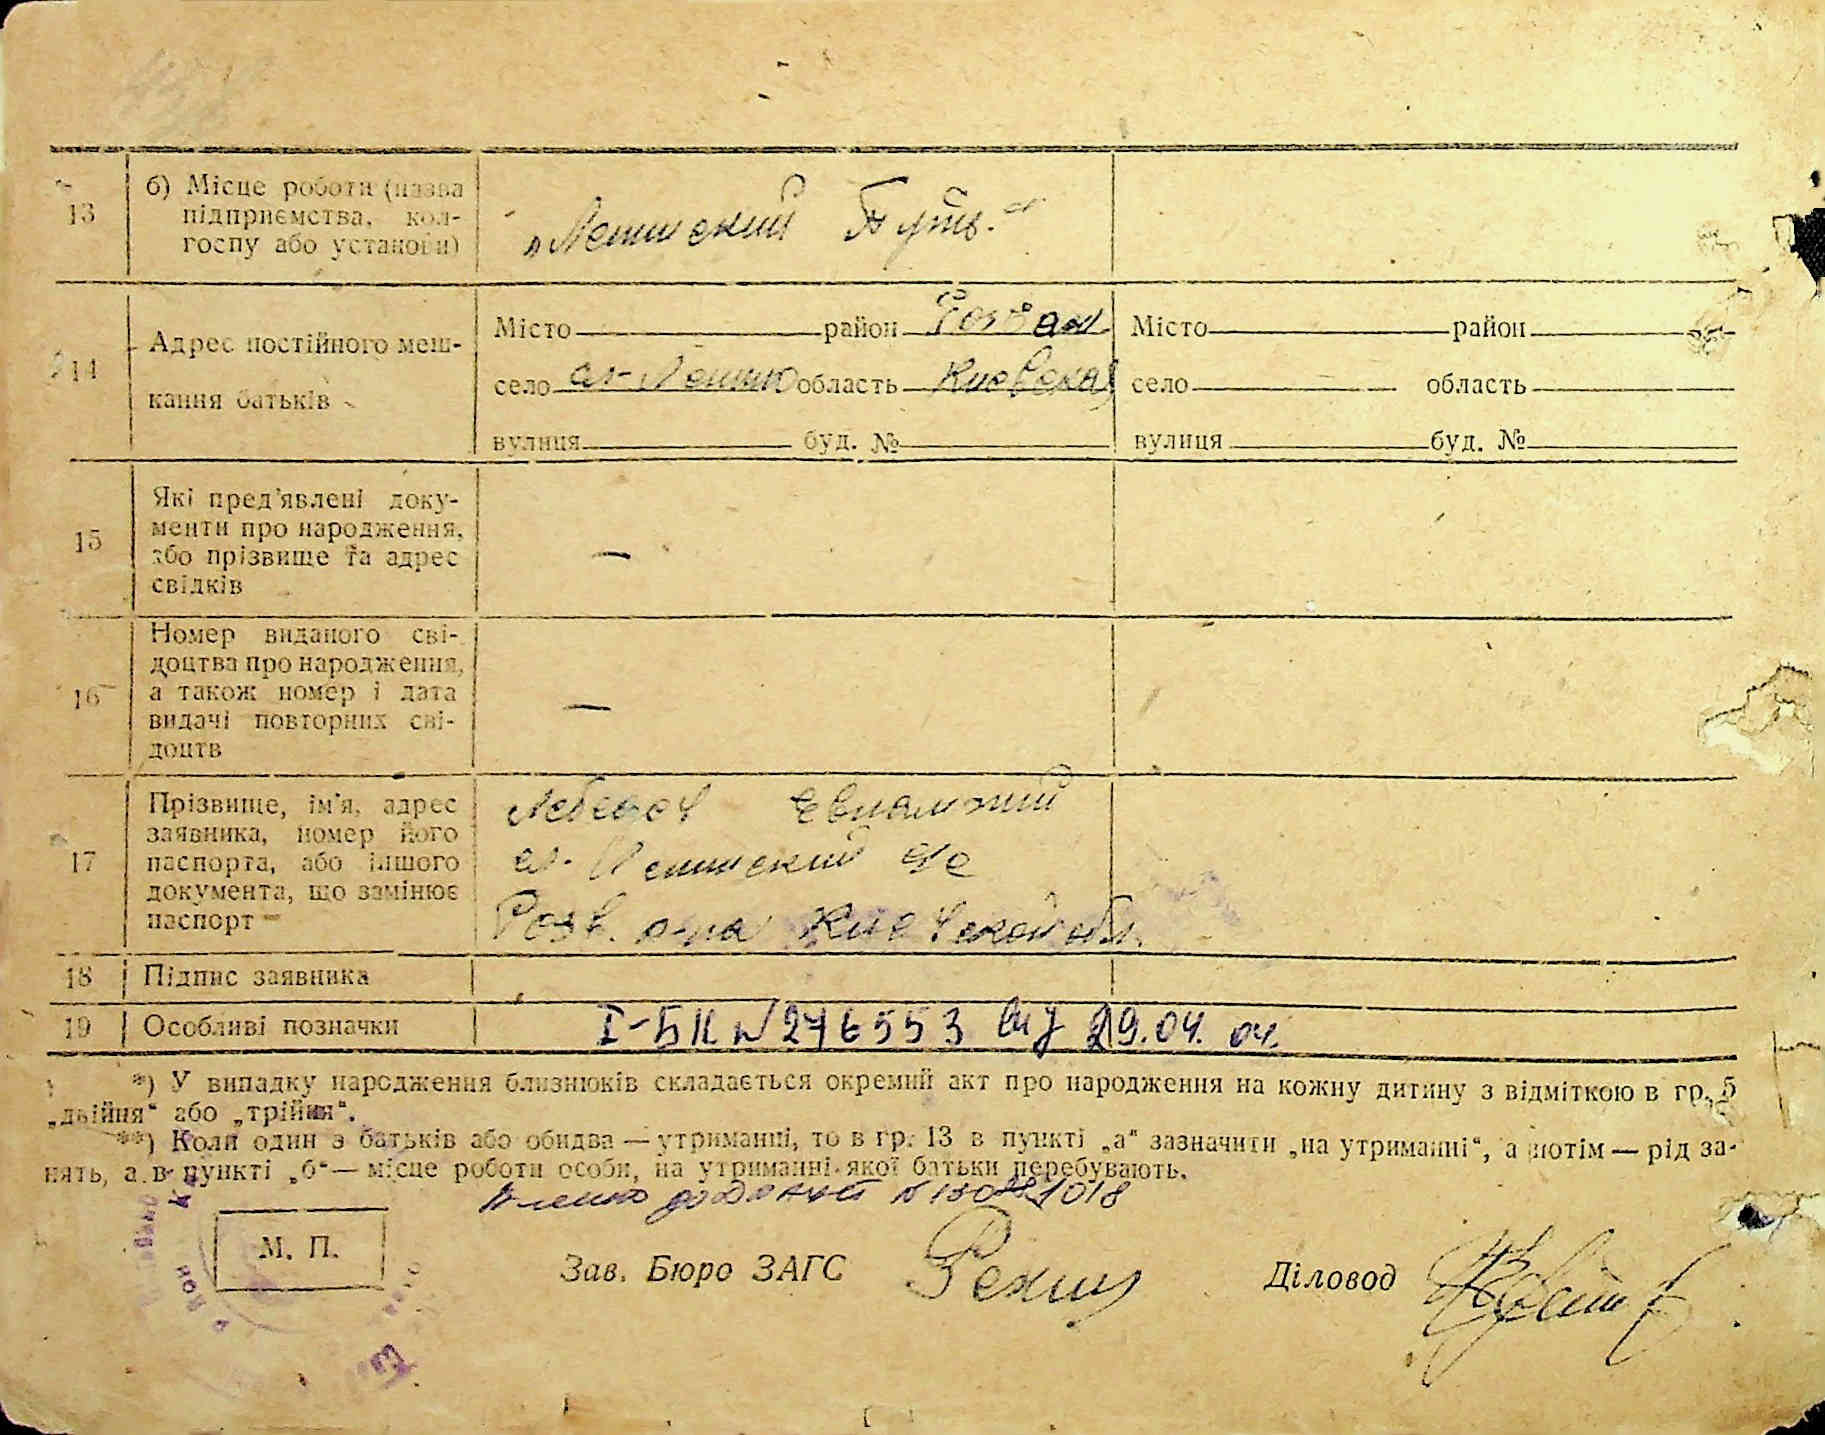 13
б) Місце роботи (назва
підприємства, кол-
госпу або установи)
„Ленинский Путь."
14
Адрес постійного меш-
кання батьків
Місто район Розваж Місто район
село область Киевская село область
вулиця буд. № вулиця буд. №
15
Які пред'явлені доку-
менти про народження,
або прізвище та адрес
свідків
—
16
Номер виданого сві-
доцтва про народження,
а також номер і дата
видачі повторних сві-
доцтв
—
17
Прізвище, ім'я, адрес
заявника, номер його
паспорта, або іншого
документа, що замінює
паспорт
Ленинский
Розв. р-на Киевской обл.
18 Підпис заявника
19 Особливі позначки I-БК № 276553 від 29.04.04.
*) У випадку народження близнюків складається окремий акт про народження на кожну дитину з відміткою в гр. 5
„двійня“ або „трійня“.
**) Коли один з батьків або обидва — утриманні, то в гр. 13 в пункті „а“ зазначити „на утриманні“, а потім — рід за-
нять, а в пункті „б“ — місце роботи особи, на утриманні якої батьки перебувають.
М. П.
Зав. Бюро ЗАГС
Діловод